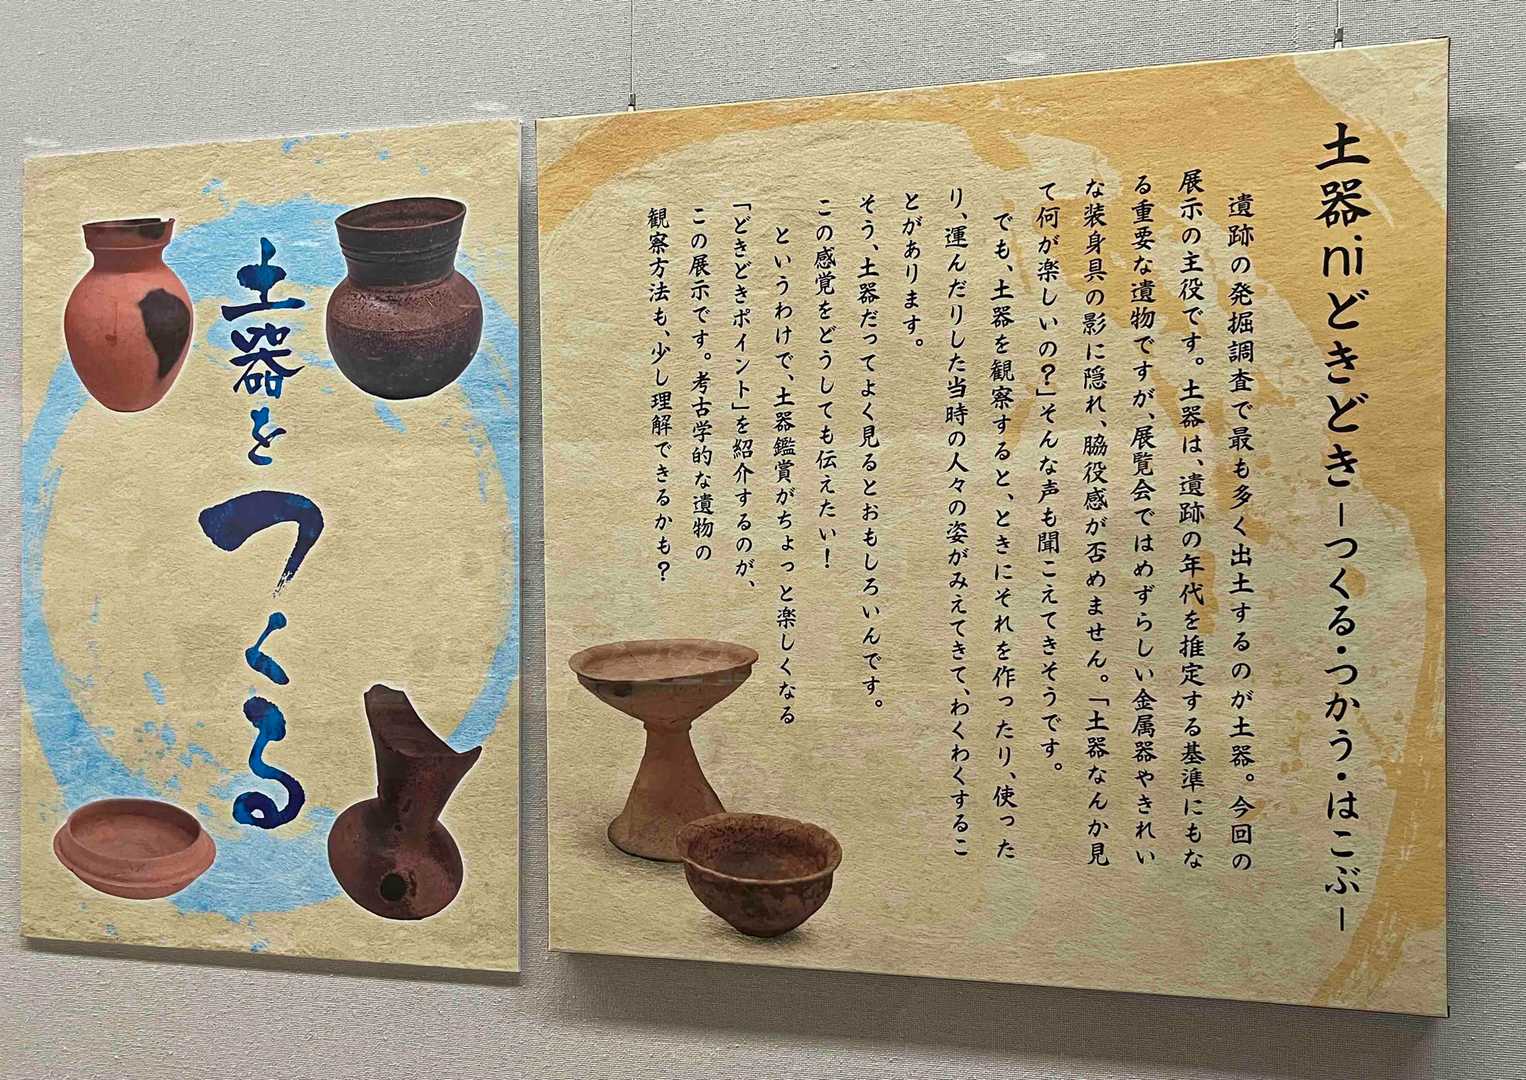 土器niどきどき－つくる・つかう・はこぶ－
遺跡の発掘調査で最も多く出土するのが土器。今回の
展示の主役です。土器は、遺跡の年代を推定する基準にもな
る重要な遺物ですが、展覧会ではめずらしい金属器やきれい
な装身具の影に隠れ、脇役感が否めません。「土器なんか見
て何が楽しいの？」そんな声も聞こえてきそうです。
でも、土器を観察すると、ときにそれを作ったり、使った
り、運んだりした当時の人々の姿がみえてきて、わくわくするこ
とがあります。
そう、土器だってよく見るとおもしろいんです。
この感覚をどうしても伝えたい！
というわけで、土器鑑賞がちょっと楽しくなる
「どきどきポイント」を紹介するのが、
この展示です。考古学的な遺物の
観察方法も、少し理解できるかも？
土器を
つくる